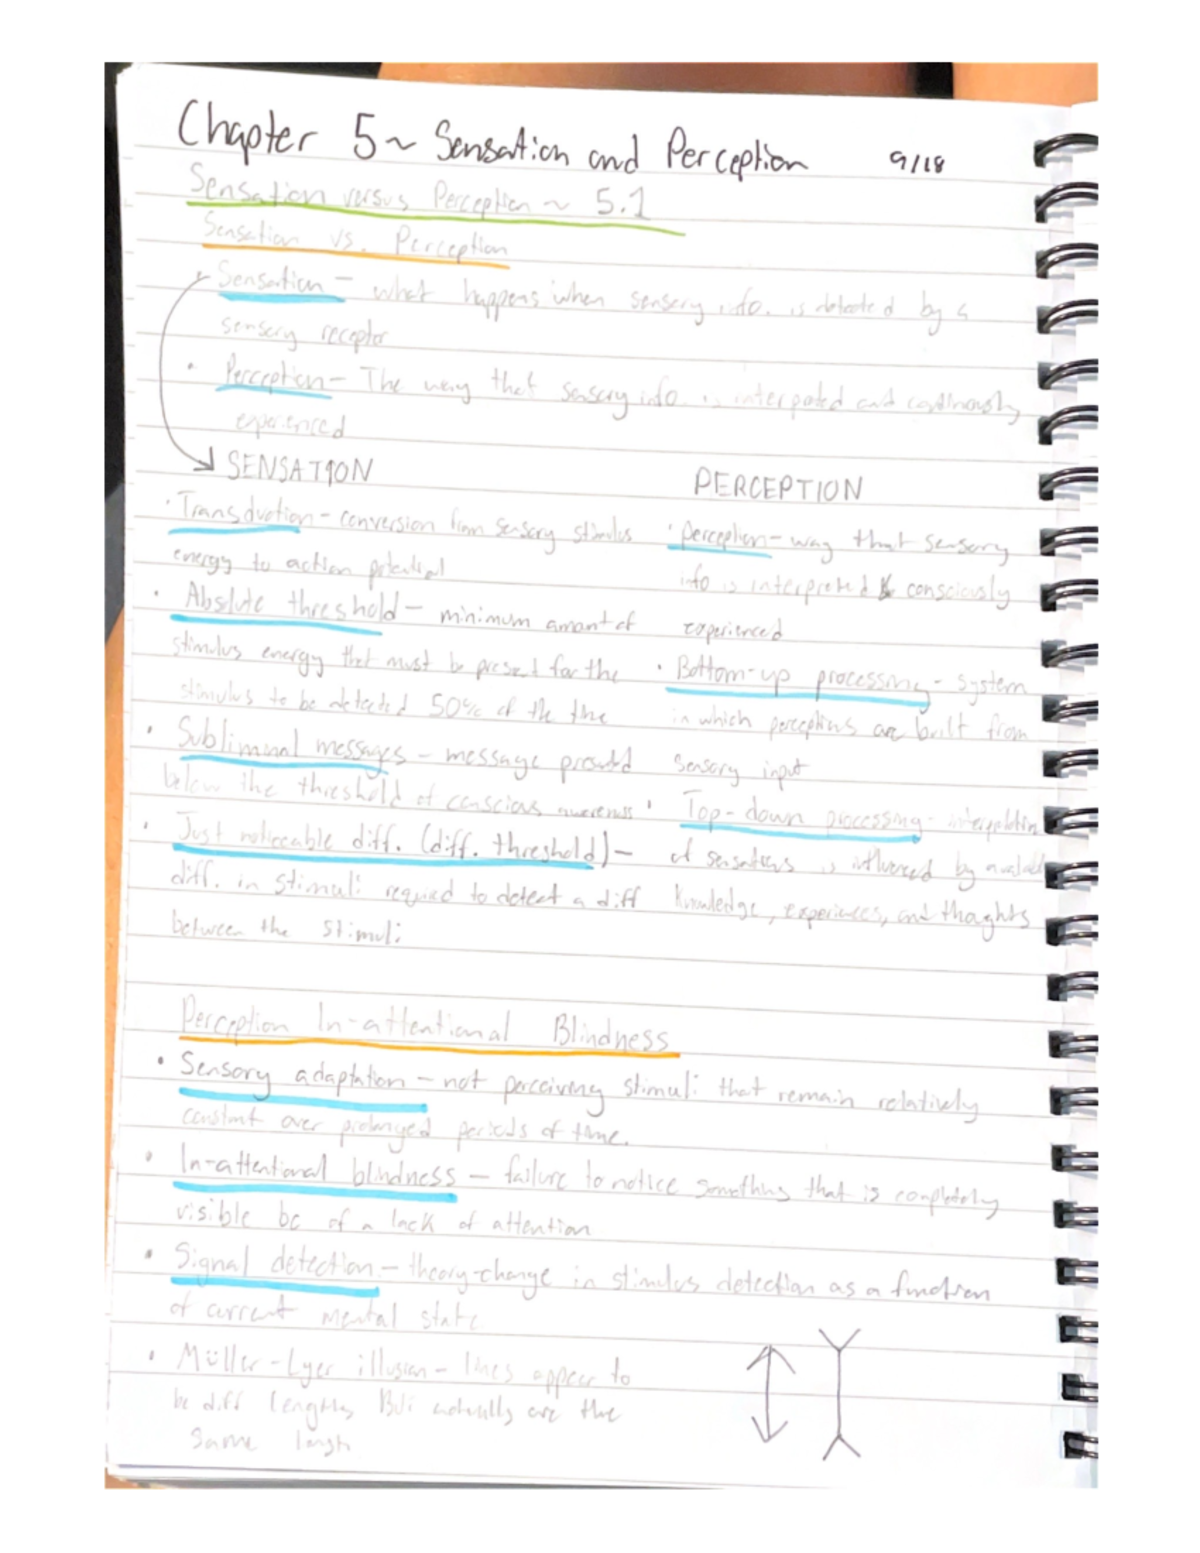 Chapter 5~ Sensation and Perception 9/18
Sensation versus Perception ~ 5.1
Sensation vs. Perception
Sensation – what happens when sensory info. is detected by a
sensory receptor
• Perception – The way that sensory info. is interpated and continously
experienced
SENSATION
• Transduction – conversion from sensory stimulus
energy to action potential
• Absolute threshold – minimum amount of
stimulus energy that must be present for the
stimulus to be detected 50% of the time
• Subliminal messages – message presented
below the threshold of conscious awareness
• Just noticeable diff. (diff. threshold) –
diff. in stimuli required to detect a diff
between the stimuli
PERCEPTION
• Perception – way that sensory
info is interpreted & consciously
experienced
• Bottom-up processing – system
in which perceptions are built from
sensory input
• Top-down processing – interpretation
of sensations is influenced by available
knowledge, experiences, and thoughts
Perception In-attentional Blindness
• Sensory adaptation – not perceiving stimuli that remain relatively
constant over prolonged periods of time.
• In-attentional blindness – failure to notice something that is completely
visible bc of a lack of attention
• Signal detection – theory-change in stimulus detection as a function
of current mental state
• Müller-Lyer illusion – lines appear to
be diff lengths, But actually are the
same length